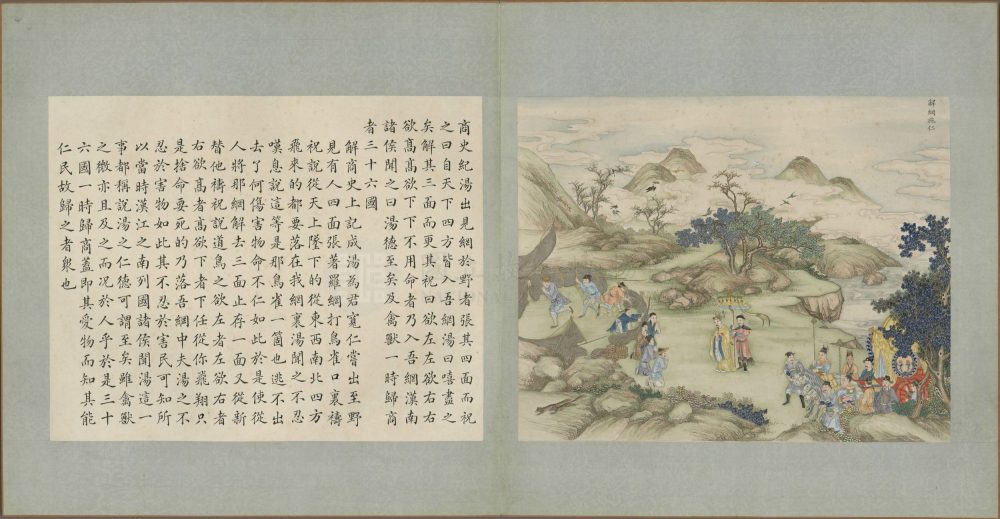 解網施仁
商史紀湯出見網於野者張其四面而祝
之曰自天下四方皆入吾網湯曰嘻盡之
矣解其三面而更其祝曰欲左左欲右右
欲高高欲下下不用命者乃入吾網漢南
諸侯聞之曰湯德至矣及禽獸一時歸商
者三十六國
解商史上記成湯為君寬仁嘗出至野
見有人四面張著羅網打鳥雀口裏禱
祝說從天上墜下的從東西南北四方
飛來的都要落在我網裏湯聞之不忍
嘆息說這等是那鳥雀一箇也逃不出
去了何傷害物命不仁如此於是使從
人將那網解去三面止存一面又從新
替他禱祝說道鳥之欲左者左欲右者
右欲高者高欲下者下任從你飛翔只
是捨命要死的乃落吾網中夫湯之不
忍於害物如此其不忍於害民可知所
以當時漢江之南列國諸侯聞湯這一
事都稱說湯之仁德可謂至矣雖禽獸
之微亦且及之而況於人乎於是三十
六國一時歸商蓋即其愛物而知其能
仁民故歸之者衆也